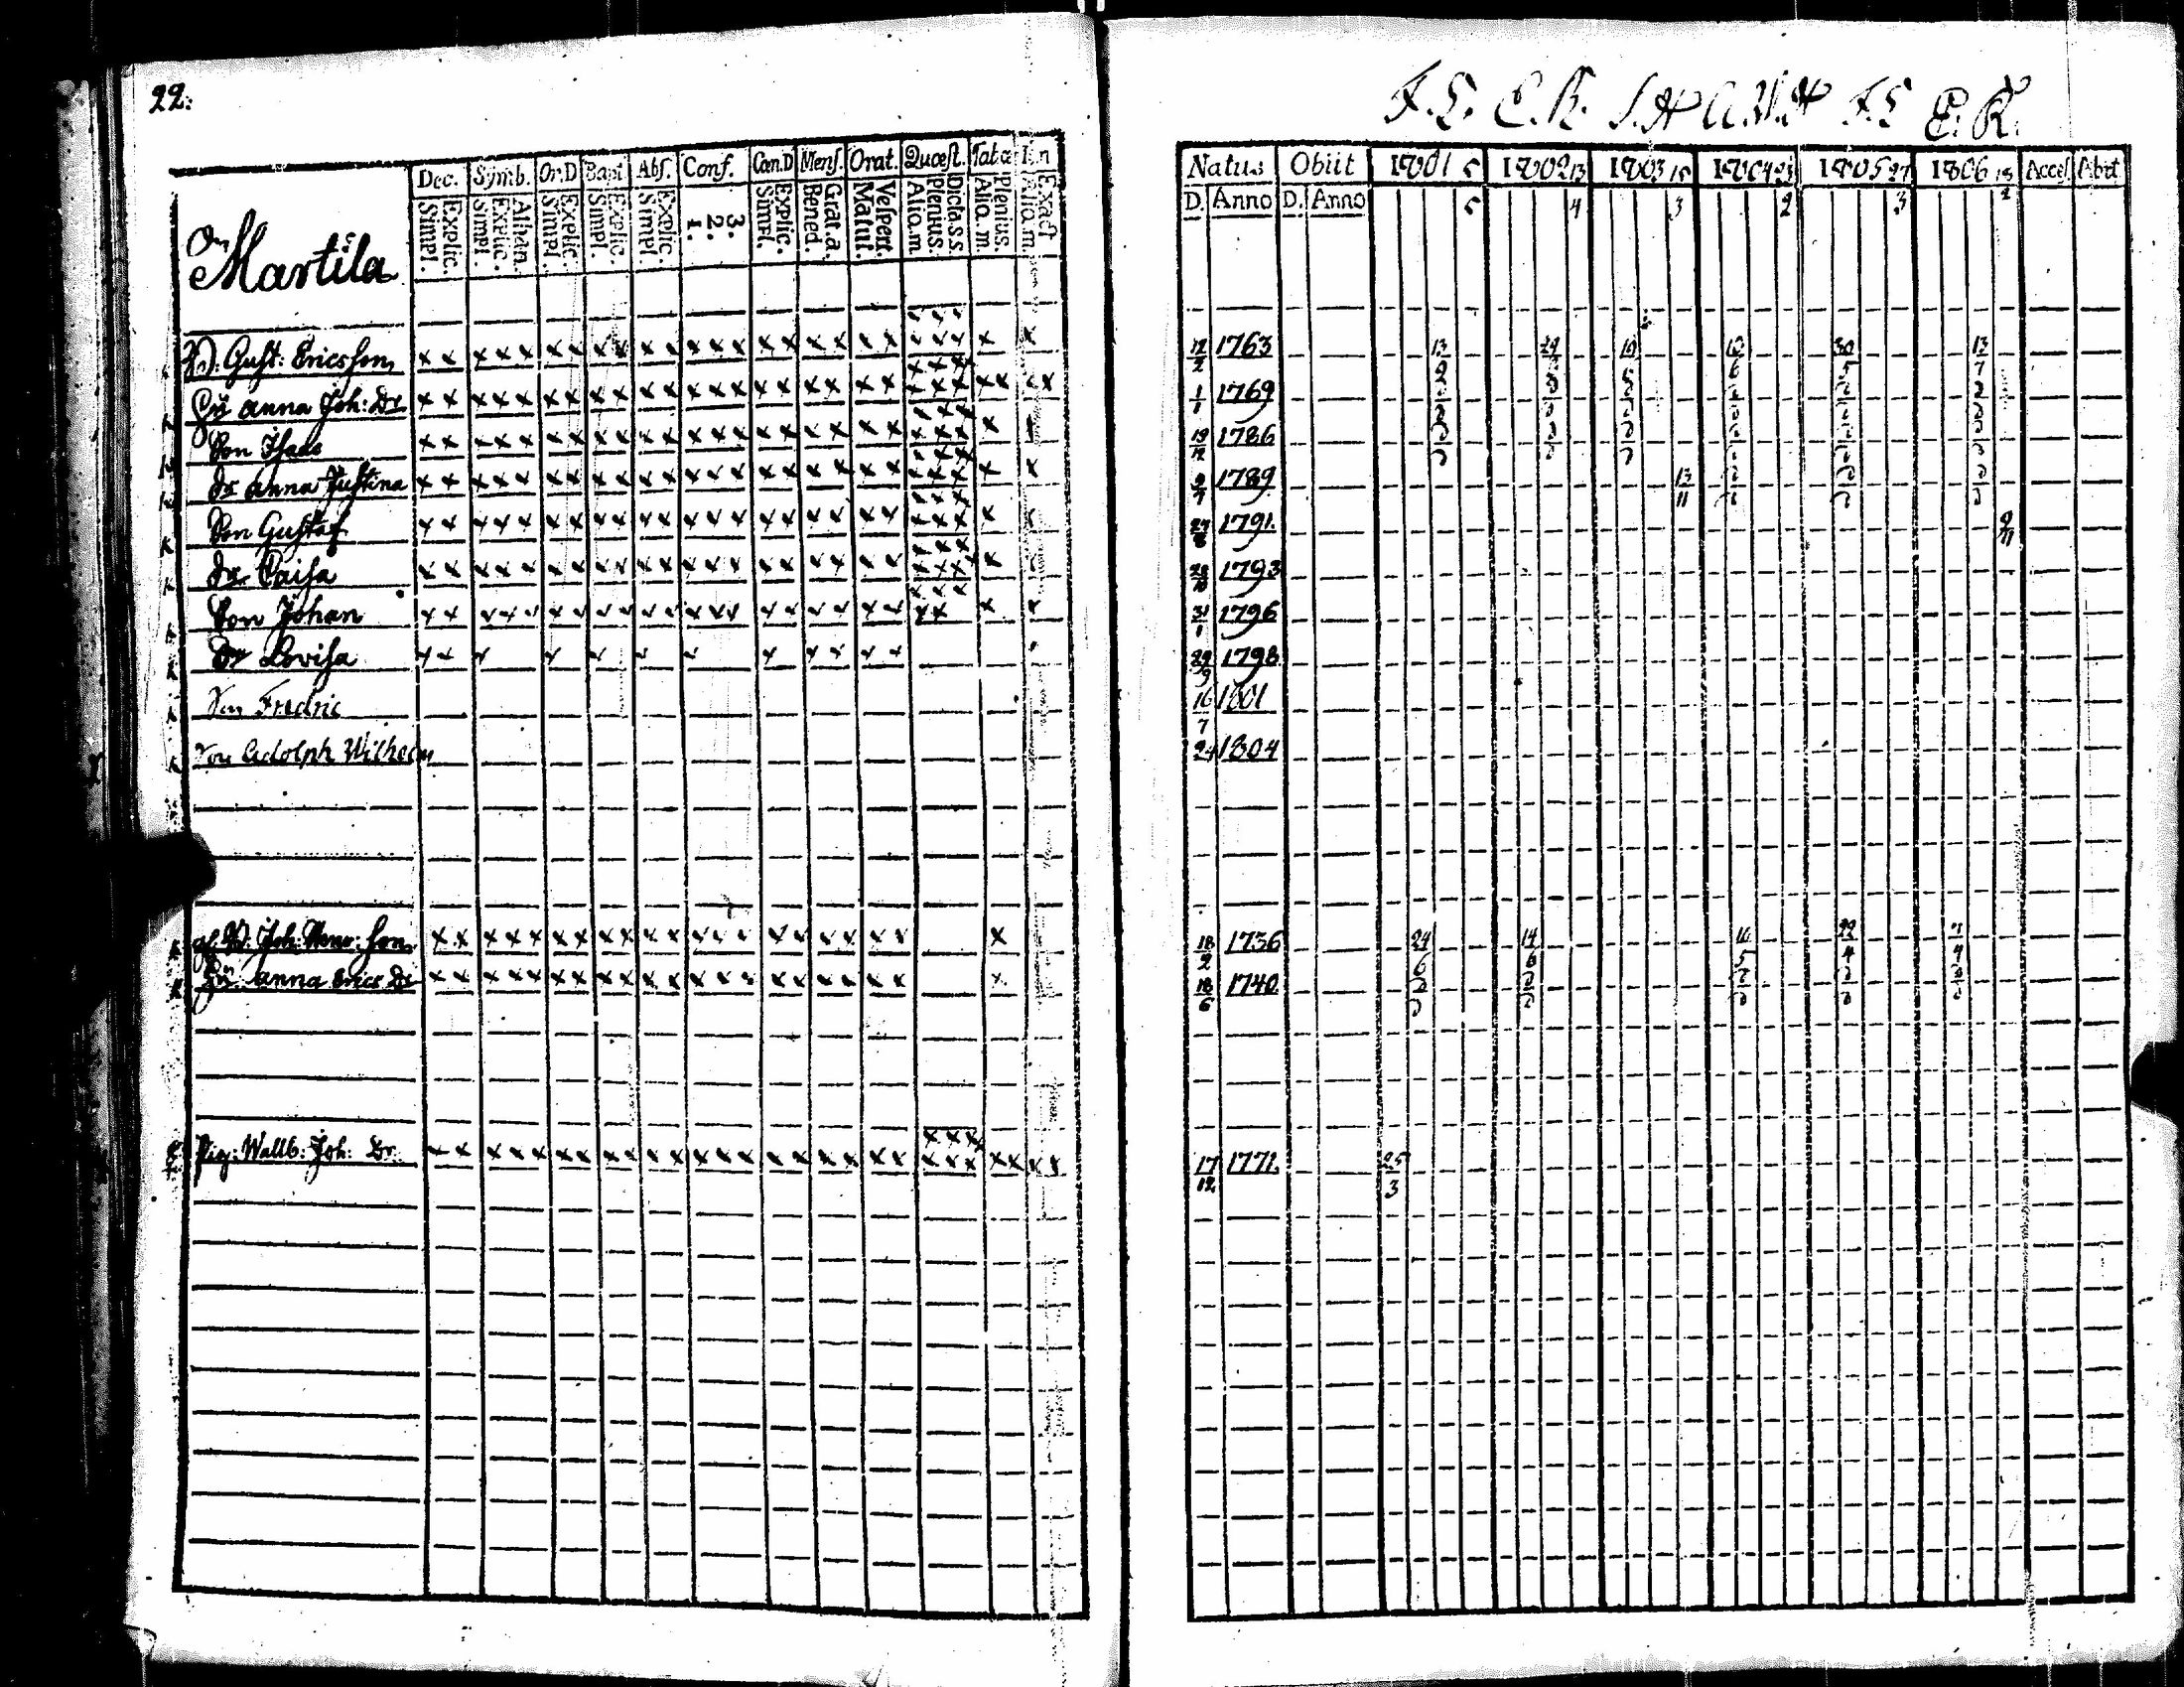 22:
F. L. C. R. F. L. E. R.
Dec. Symb. Or.D Bapt Abſ. Conf. Cœn.D Menſ. Orat. Quæſt. Tab.æ
Explic. Simpl. Athan. Explic. Simpl. Explic. Simpl. Explic. Simpl. Explic. Simpl. 3. 2. 1. Explic. Simpl. Grat.a. Bened. Veſpert. Matut. Dicta.s.s. Plenius. Aliq.m Plenius. Aliq.m. Exact Aliq.m.
Natus Obiit 1801 5 1802 13 1803 15 1804 23 1805 27 1806 18 Acceſ. Abiit
D. Anno D. Anno 5 4 3 2 3 2
Martila
Guſt: Ericsſon 12/2 1763 13/2 10/5 12/6 30/5 13/7
Anna Joh: Dr 1/1 1769
Son Iſaac 19/12 1786
Dr Anna Juſtina 9/7 1789 13/11
Son Guſtaf 24/8 1791
Dr Caiſa 28/10 1793
Son Johan 31/1 1796
Dr Loviſa 29/9 1798
Son Fredric 16/7 1801
Son Adolph Wilhelm 24 1804
Joh: ſon 18/2 1736 24/6 14/6 16/5 22/4 7/4
Anna Erics Dr 18/6 1740
Pig: Wallb: Joh: Dr. 17/12 1771 25/3